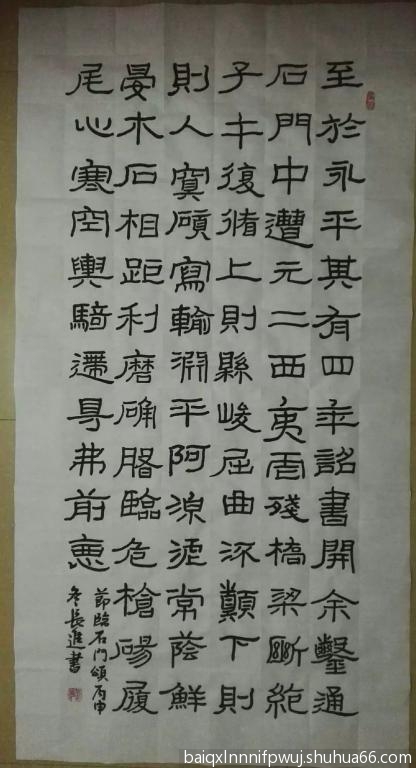 至於永平其有四年詔書開余鑿通
石門中遭元二西夷虐殘橋梁斷絶
子午復循上則縣峻屈曲流顛下則
則人寫輸淵平阿泥常蔭鮮
晏木石相距利磨确臨危槍碭履
尾心寒空輿騎遰㝵弗前
節臨石門頌丙申
冬長進書
baiqxlnnnifpwuj.shuhua66.com